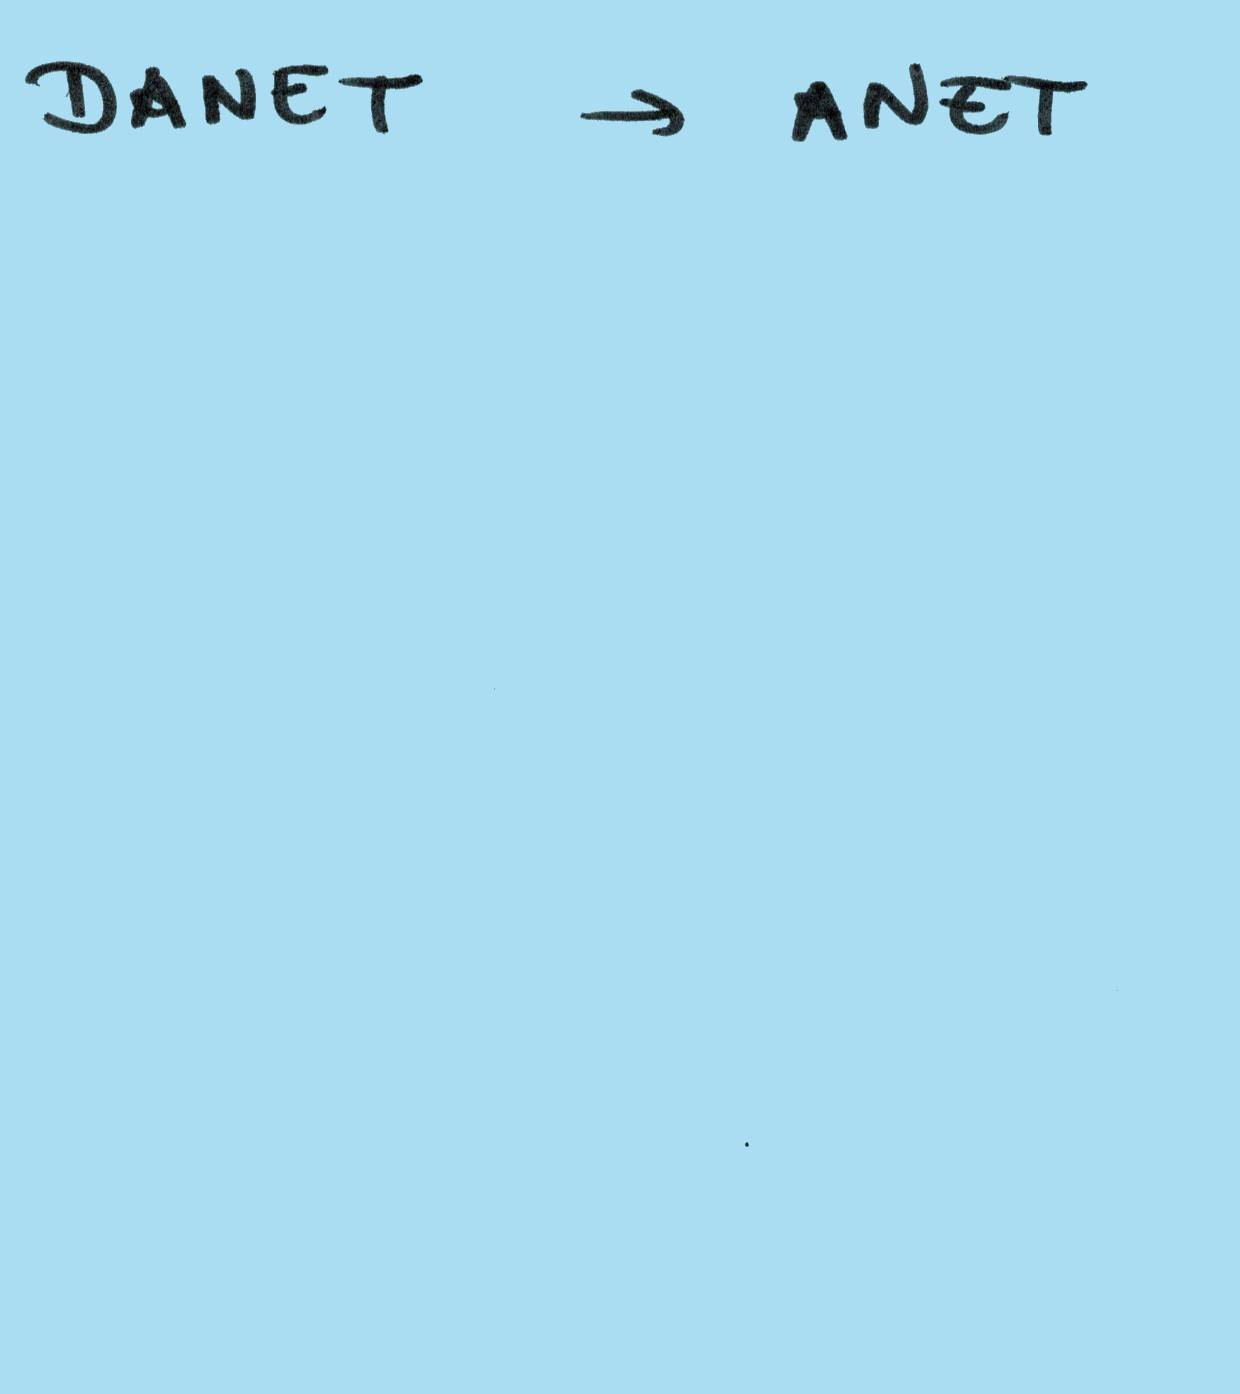 DANET → ANET